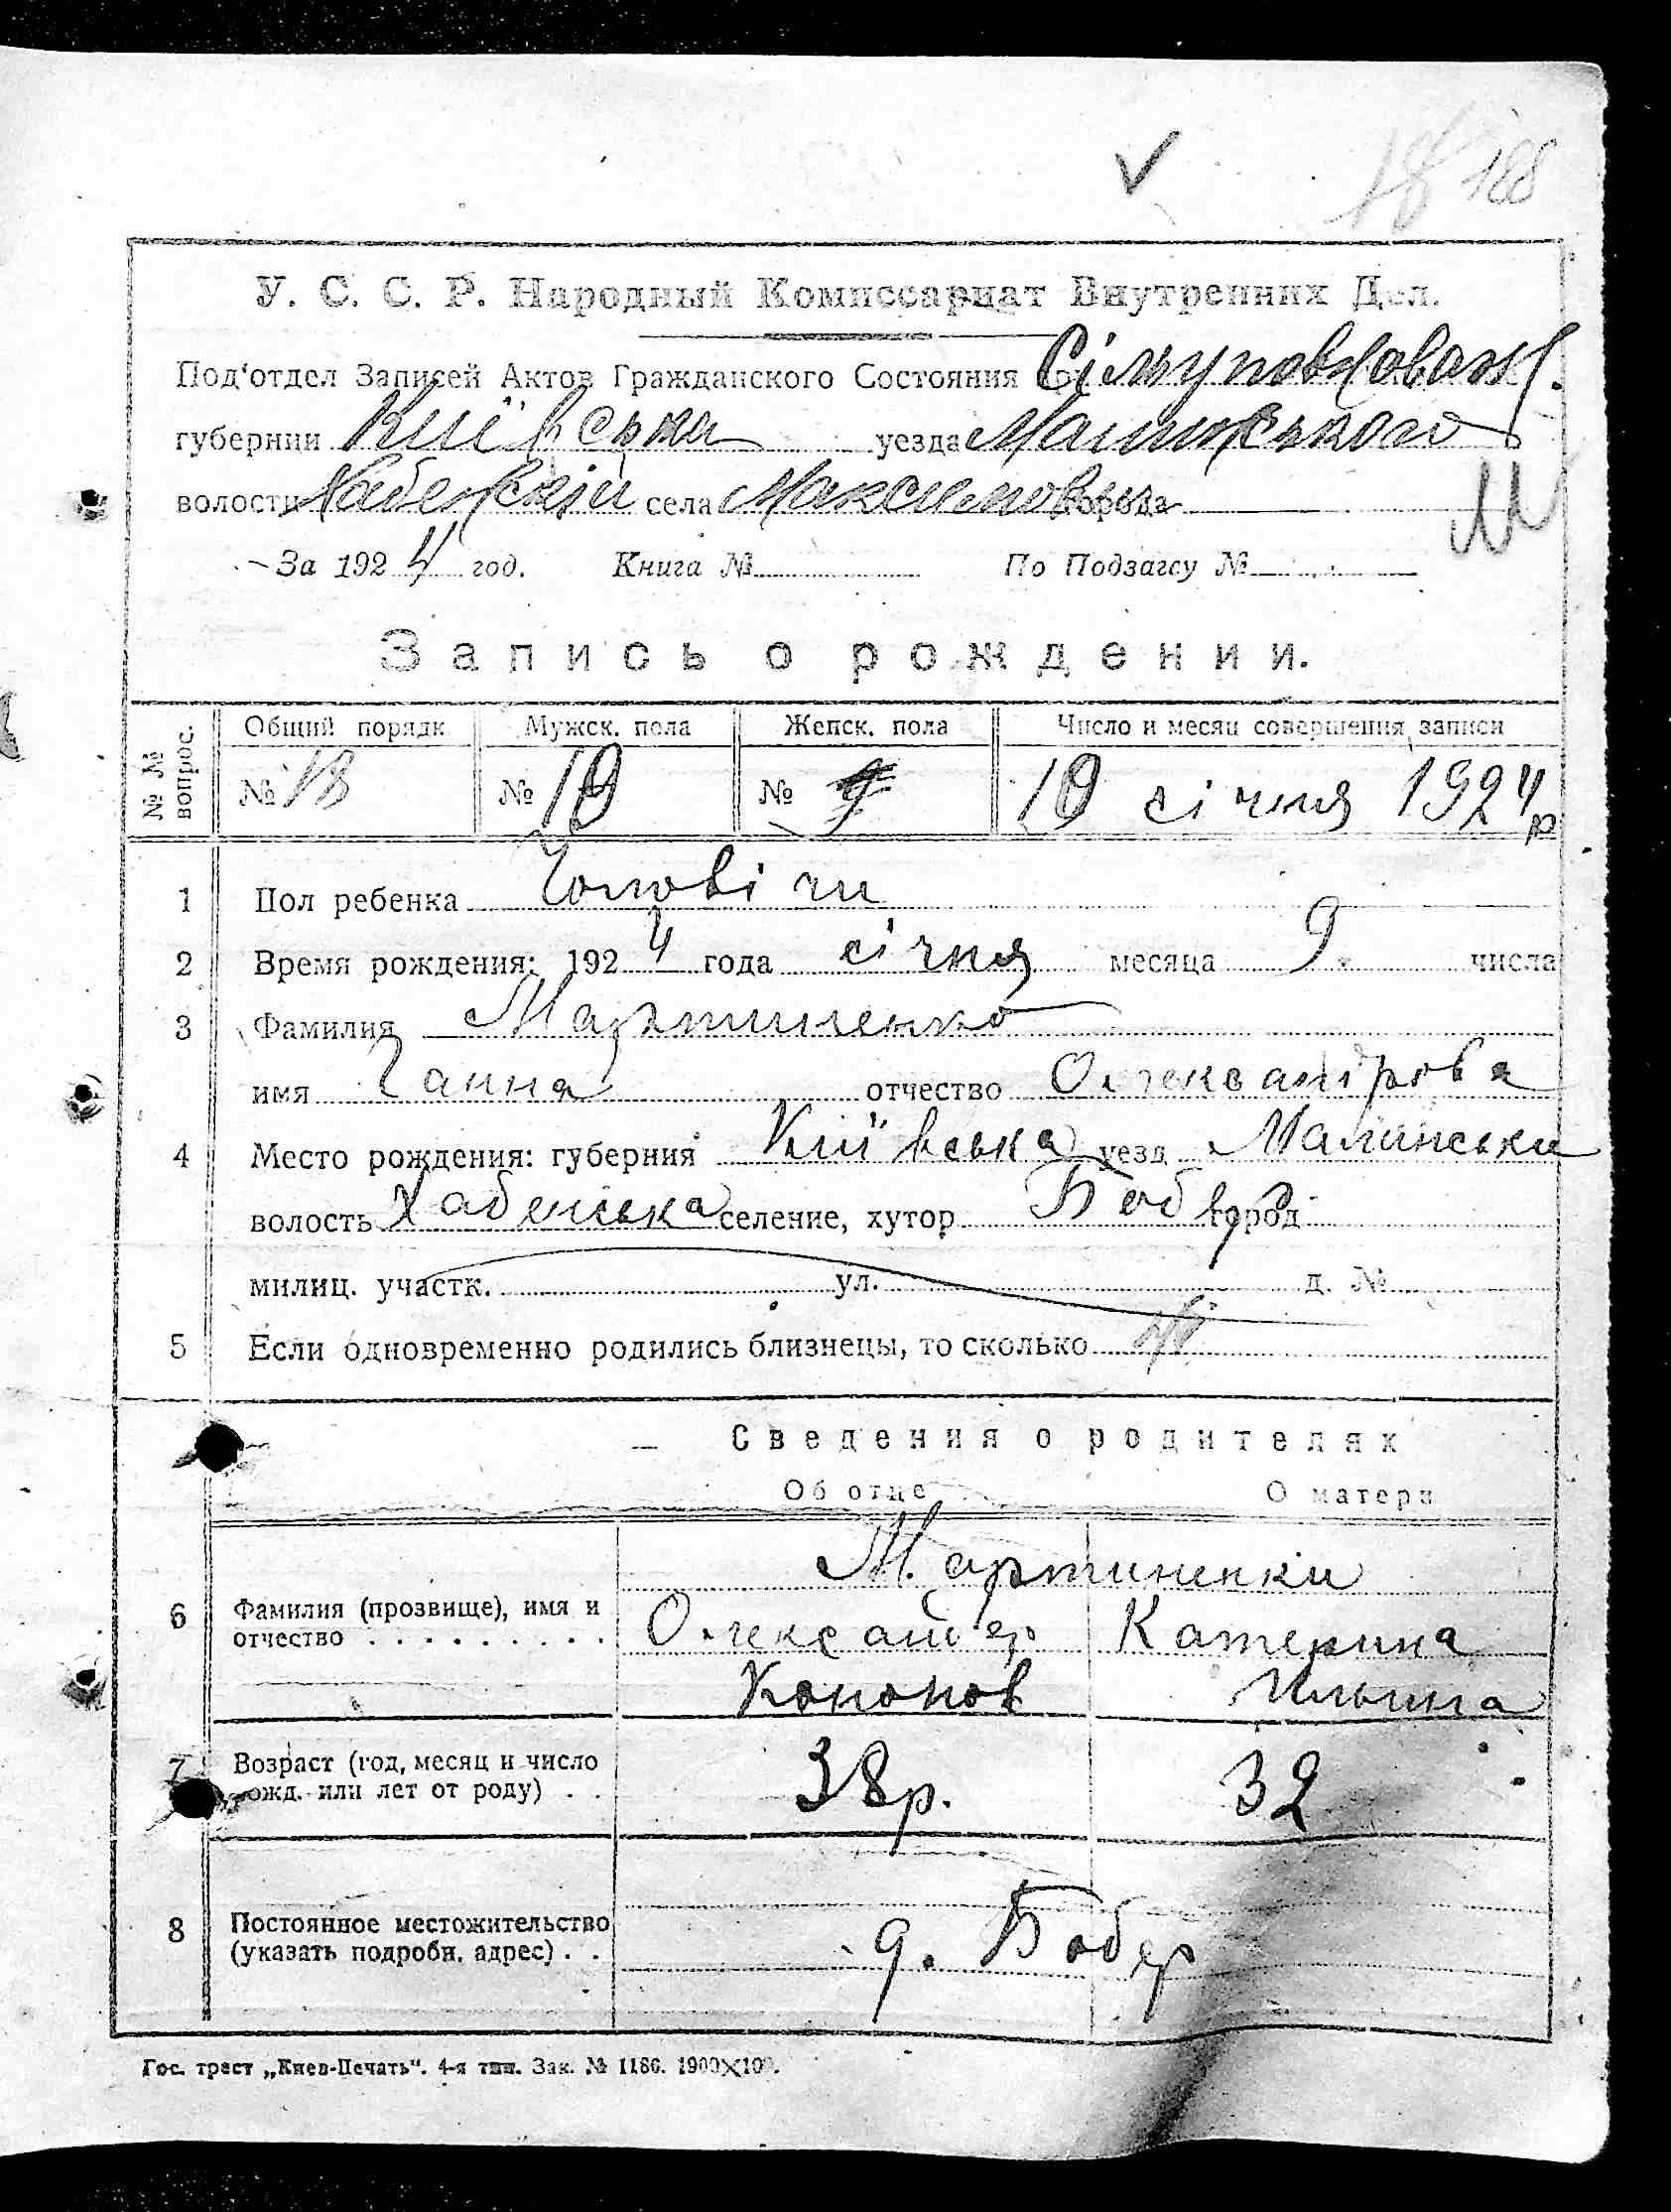 188
У. С. С. Р. Народный Комиссариат Внутренних Дел.
Под'отдел Записей Актов Гражданского Состояния при Сільуповноваж.
губернии Київська уезда Малинського
волости Хабенській села Максимович города
За 1924 год. Книга № По Подзагсу №
М
Запись о рождении.
№ № вопрос. Общий порядк Мужск. пола Женск. пола Число и месяц совершения записи
№ 18 № 10 № 10 січня 1924 р
1 Пол ребенка Чоловічи
2 Время рождения: 1924 года січня месяца 9. числа
3 Фамилия Мартиненко
имя Ганна отчество Олександрова
4 Место рождения: губерния Київська уезд Малинськи
волость Хабенська селение, хутор Бобер город
милиц. участк. ул. д. №
5 Если одновременно родились близнецы, то сколько
Сведения о родителях
Об отце О матери
Мартиненки
6 Фамилия (прозвище), имя и отчество . . . . . . . . . Олександер Катерина
Кононов Ильина
7 Возраст (год, месяц и число рожд. или лет от роду) . . 38р. 32
8 Постоянное местожительство (указать подробн. адрес) . . д. Бобер
Гос. трест „Киев-Печать“. 4-я тип. Зак. № 1186. 1900×100.